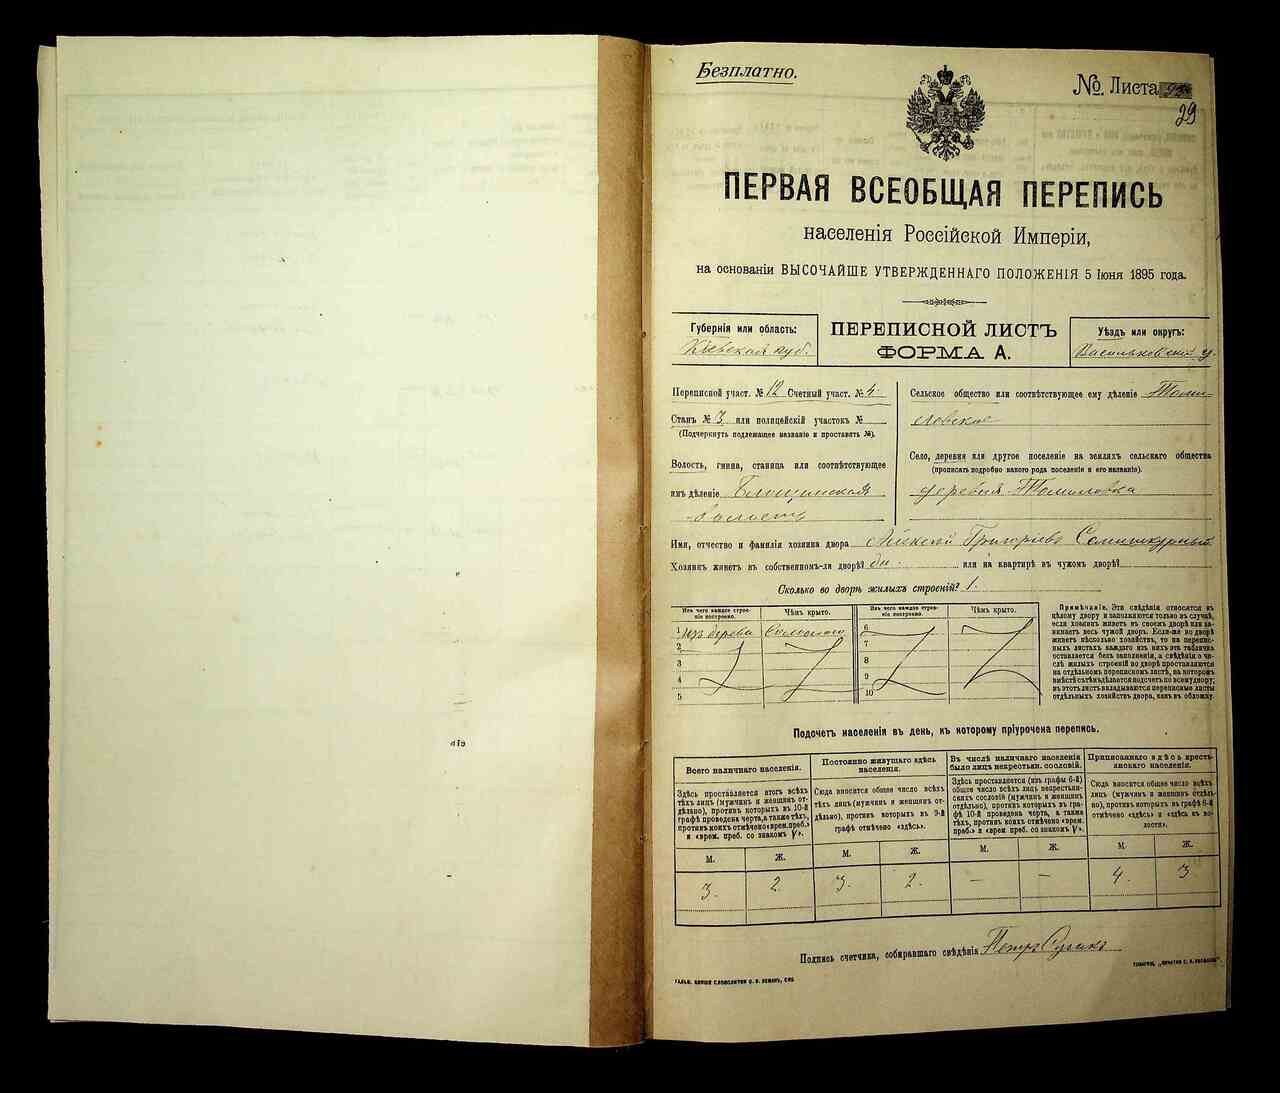 Безплатно.
№ Листа
29
ПЕРВАЯ ВСЕОБЩАЯ ПЕРЕПИСЬ
населенія Россійской Имперіи,
на основаніи ВЫСОЧАЙШЕ УТВЕРЖДЕННАГО ПОЛОЖЕНІЯ 5 Іюня 1895 года.
Губернія или область:
Кіевская губ.
ПЕРЕПИСНОЙ ЛИСТЪ
ФОРМА А.
Уѣздъ или округъ:
Васильковскій у.
Переписной участ. № 12 Счетный участ. № 4
Станъ № 3 или полицейскій участокъ №
(Подчеркнуть подлежащее названіе и проставить №).
Волость, гмина, станица или соотвѣтствующее
имъ дѣленіе Блощинская
волость
Сельское общество или соотвѣтствующее ему дѣленіе Томи-
ловское
Село, деревня или другое поселеніе на земляхъ сельскаго общества
(прописать подробно какого рода поселеніе и его названіе).
деревня Томиловка
Имя, отчество и фамилія хозяина двора Алексей Григоріевъ
Хозяинъ живетъ въ собственномъ-ли дворѣ? да. или на квартирѣ въ чужомъ дворѣ?
Сколько во дворѣ жилыхъ строеній? 1.
Изъ чего каждое строе-
ніе построено.
Чѣмъ крыто.
1 Изъ дерева Соломою
2
3
4
5
Изъ чего каждое строе-
ніе построено.
Чѣмъ крыто.
6
7
8
9
10
Примѣчаніе. Эти свѣдѣнія относятся къ
цѣлому двору и заполняются только въ случаѣ,
если хозяинъ живетъ въ своемъ дворѣ или за-
нимаетъ весь чужой дворъ. Если-же во дворѣ
живетъ нѣсколько хозяйствъ, то на перепис-
ныхъ листахъ каждаго изъ нихъ эта табличка
оставляется безъ заполненія, а свѣдѣнія о чи-
слѣ жилыхъ строеній во дворѣ проставляются
на отдѣльномъ переписномъ листѣ, на которомъ
вмѣстѣ съ тѣмъ дѣлается подсчетъ по всему двору;
въ этотъ листъ вкладываются переписные листы
отдѣльныхъ хозяйствъ двора, какъ въ обложку.
Подсчетъ населенія въ день, къ которому пріурочена перепись.
Всего наличнаго населенія.
Здѣсь проставляется итогъ всѣхъ
тѣхъ лицъ (мужчинъ и женщинъ от-
дѣльно), противъ которыхъ въ 10-й
графѣ проведена черта, а также тѣхъ,
противъ коихъ отмѣчено «врем. преб.»
и «врем. преб. со знакомъ V».
Постоянно живущаго здѣсь
населенія.
Сюда вносится общее число всѣхъ
тѣхъ лицъ (мужчинъ и женщинъ от-
дѣльно), противъ которыхъ въ 9-й
графѣ отмѣчено «здѣсь».
Въ числѣ наличнаго населенія
было лицъ некрестьян. сословій.
Здѣсь проставляется (изъ графы 6-й)
общее число всѣхъ лицъ некрестьян-
скихъ сословій (мужчинъ и женщинъ
отдѣльно), противъ которыхъ въ гра-
фѣ 10-й проведена черта, а также
тѣхъ, противъ коихъ отмѣчено «врем.
преб.» и «врем. преб. со знакомъ V».
Приписаннаго здѣсь кресть-
янскаго населенія.
Сюда вносится общее число всѣхъ
лицъ (мужчинъ и женщинъ отдѣль-
но), противъ которыхъ въ графѣ 8-й
отмѣчено «здѣсь» и «здѣсь въ во-
лости».
М. Ж. М. Ж. М. Ж. М. Ж.
3. 2. 3. 2. — — 4. 3
Подпись счетчика, собиравшаго свѣдѣнія Петръ